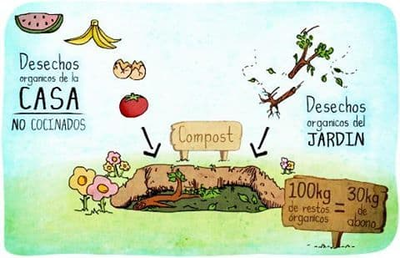 Desechos
organicos de la
CASA
NO COCINADOS
Desechos
organicos del
JARDIN
Compost
100kg
de restos
órganicos
=
30kg
de
abono